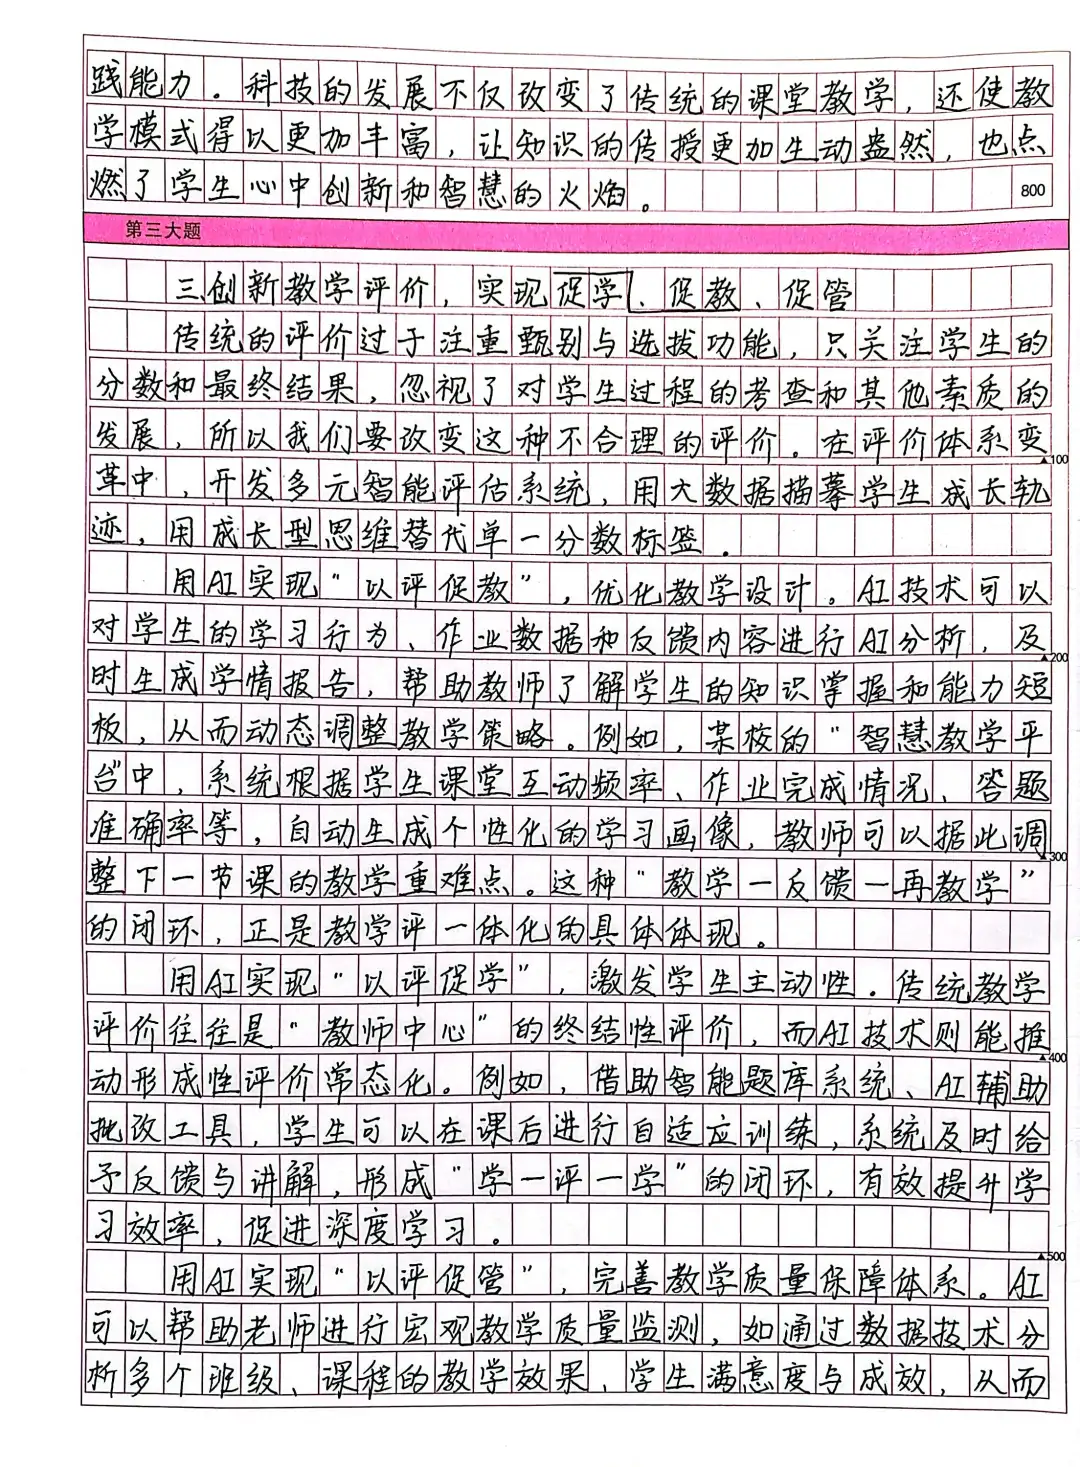 践能力。科技的发展不仅改变了传统的课堂教学，还使教
学模式得以更加丰富，让知识的传授更加生动盎然，也点
燃了学生心中创新和智慧的火焰。
800
第三大题
三、创新教学评价，实现促学、促教、促管
传统的评价过于注重甄别与选拔功能，只关注学生的
分数和最终结果，忽视了对学生过程的考查和其他素质的
发展，所以我们要改变这种不合理的评价。在评价体系变
▲100
革中，开发多元智能评估系统，用大数据描摹学生成长轨
迹，用成长型思维替代单一分数标签。
用AI实现“以评促教”，优化教学设计。AI技术可以
对学生的学习行为、作业数据和反馈内容进行AI分析，及
▲200
时生成学情报告，帮助教师了解学生的知识掌握和能力短
板，从而动态调整教学策略。例如，某校的“智慧教学平
台”中，系统根据学生课堂互动频率、作业完成情况、答题
准确率等，自动生成个性化的学习画像，教师可以据此调
▲300
整下一节课的教学重难点。这种“教学—反馈—再教学”
的闭环，正是教学评一体化的具体体现。
用AI实现“以评促学”，激发学生主动性。传统教学
评价往往是“教师中心”的终结性评价，而AI技术则能推
▲400
动形成性评价常态化。例如，借助智能题库系统、AI辅助
批改工具，学生可以在课后进行自适应训练，系统及时给
予反馈与讲解，形成“学—评—学”的闭环，有效提升学
习效率，促进深度学习。
▲500
用AI实现“以评促管”，完善教学质量保障体系。AI
可以帮助老师进行宏观教学质量监测，如通过数据技术分
析多个班级、课程的教学效果、学生满意度与成效，从而